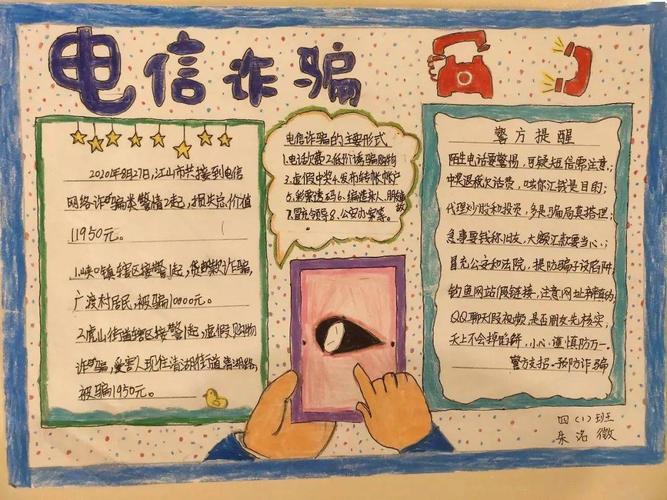 电信诈骗
2020年8月27日,江山市共接到电信
网络诈骗类警情2起,报失总价值
11950元。
1.峡口镇辖区接警1起,贷款诈骗,
广渡村居民,被骗10000元。
2.虎山街道辖区接警1起,虚假购物
诈骗,受害人现住清湖街道清湖路,
被骗1950元。
电信诈骗的主要形式
1.电话欠费2.低价诱骗购物
3.虚假中奖4.发布转帐帐户
5.彩票透码6.编造亲人、朋
7.冒充领导8.公安办案
警方提醒
陌生电话要警惕,可疑短信需注意;
中奖退税欠话费,哄你汇款是目的;
代理炒股和投资,多是骗局莫搭理;
急事要钱称旧友,大额汇款要当心;
冒充公安和法院,提防骗子设陷阱;
钓鱼网站假链接,注意网址
QQ聊天假视频,是否朋友先核实;
天上不会掉馅饼,小心谨慎防万一。
警方支招-预防诈骗
四(1)班
朱洛微